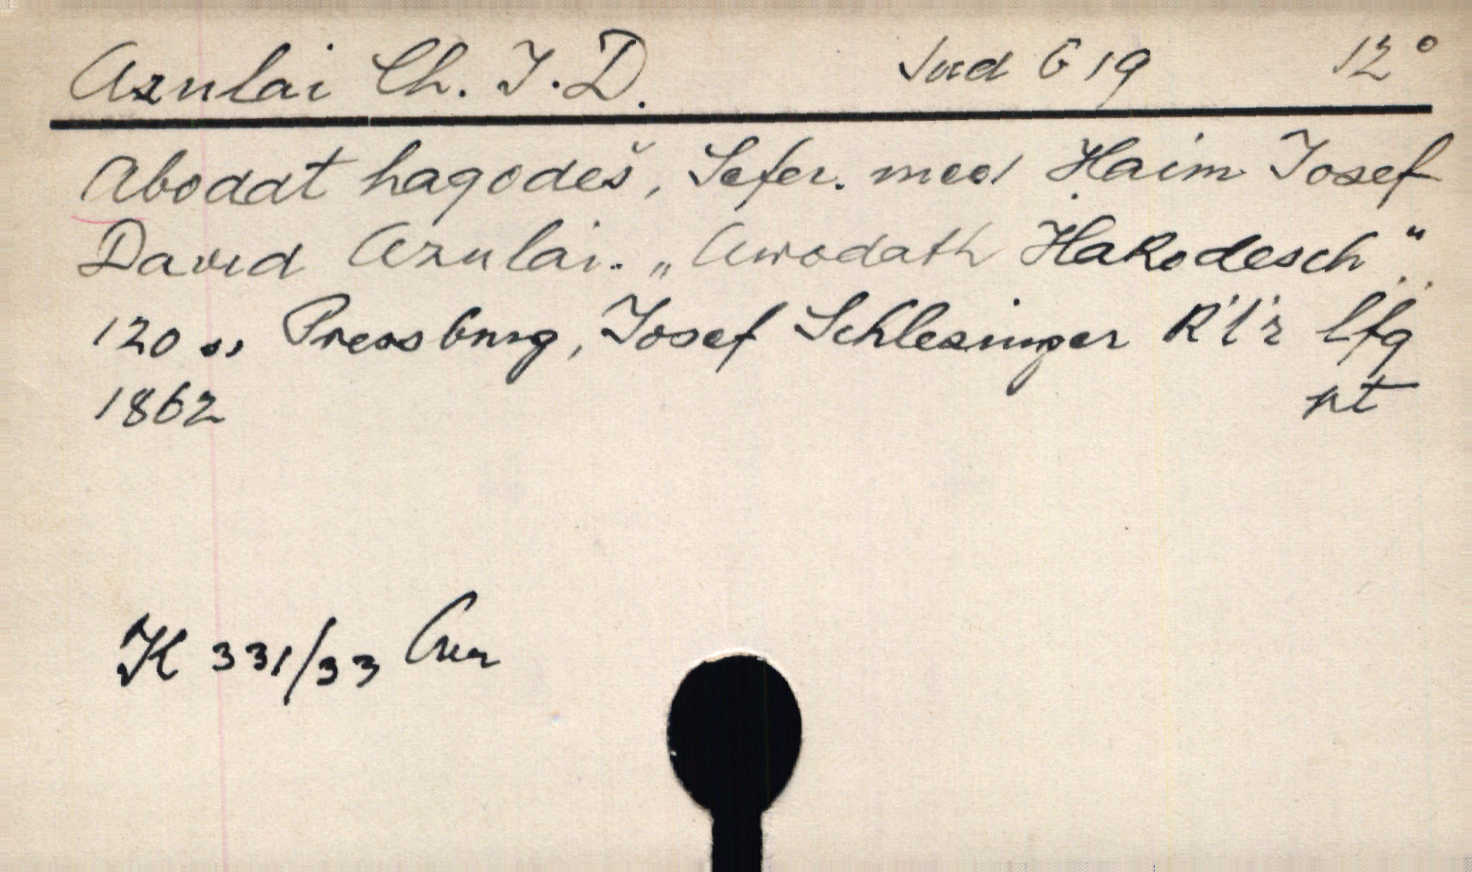 Azulai Ch. J. D. Jud G 19 12°
Abodat haqodeš, Sefer. meet Ḥaim Josef
David Azulai. „Awodath Hakodesch“.
120 s, Pressburg, Josef Schlesinger
1862
K 331/33